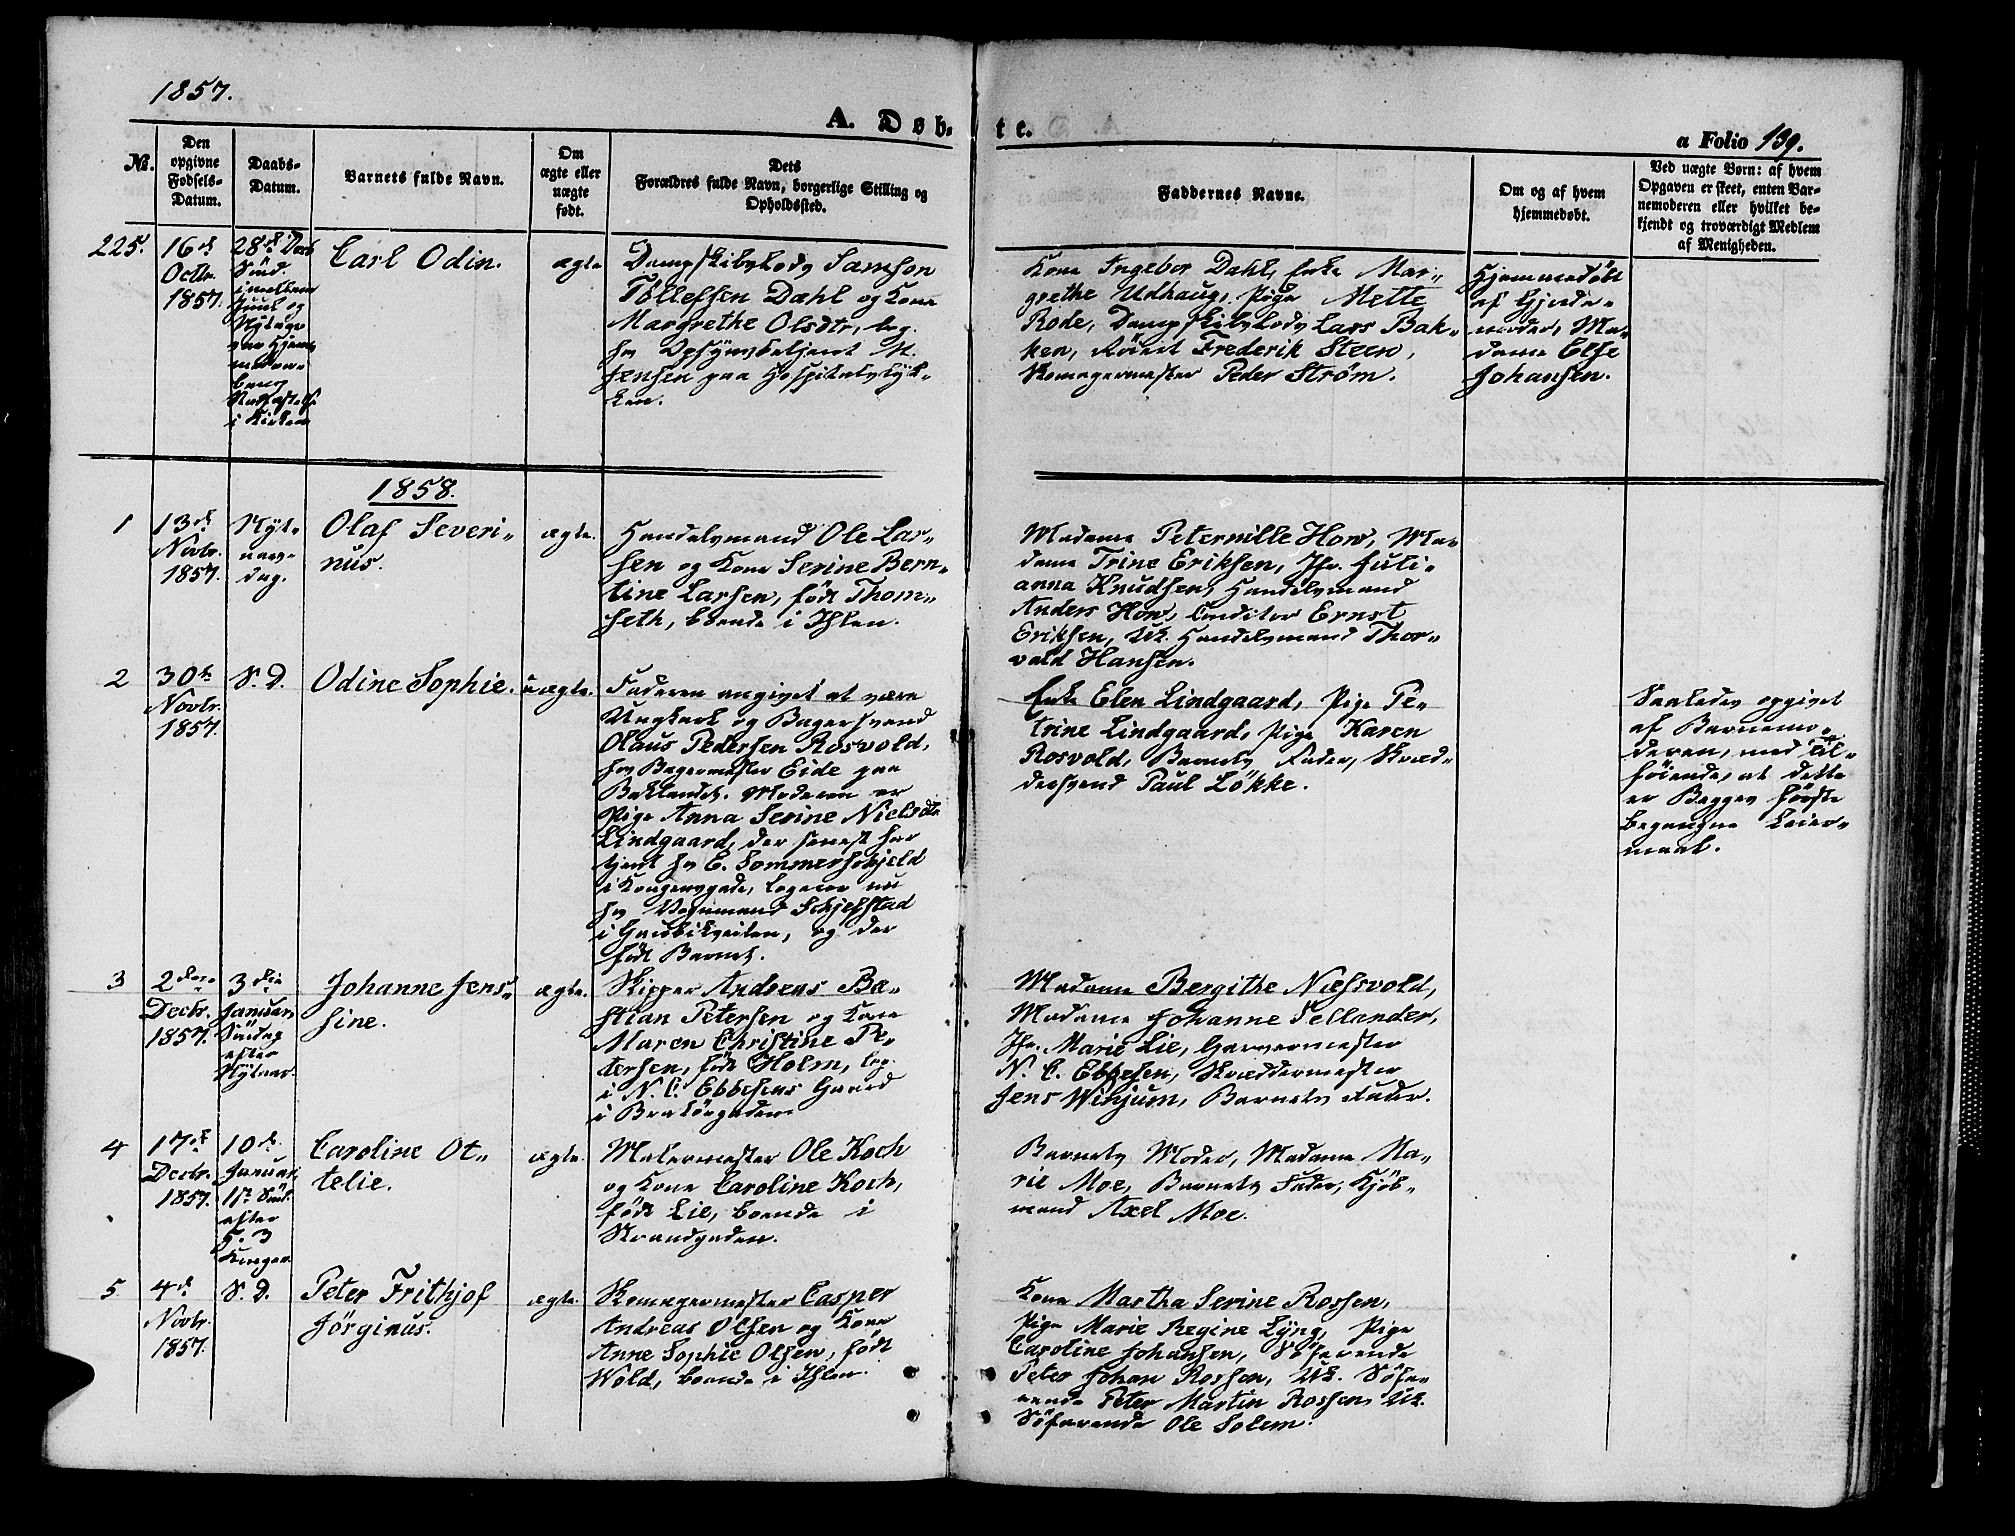 1857.
A. Døb-
te.
a Folio 139.
No.
Den
opgivne
Fødsels-
Datum.
Daabs-
Datum.
Barnets fulde Navn.
Om
ægte eller
uægte
født.
Dets
Forældres fulde Navn, borgerlige Stilling og
Opholdssted.
Faddernes Navne.
Om og af hvem
hjemmedøbt.
Ved uægte Børn: af hvem
Opgaven er skeet, enten Bar-
nemoderen eller hvilket be-
kjendt og troværdigt Medlem
af Menigheden.
225.
16d
Octbr.
1857.
28de Decb
Sönd.
imellem
Juul og
Nytaar
i Kirken
Carl Odin.
ægte
Dampskibslods Samson
Tølleffsen Dæhl og Kone
Margrethe Olsdtr, log.
hs Opsynsbetjent M.
Jensen paa Hospitalsløk-
ken.
Kone Ingebor Dahl, Enke Mar-
grethe Udhaug, Pige Mette
Rode, Dampskibslods Lars Bak-
ken, Frederik Steen,
Skomagermester Peder Strøm.
Hjemmedøbt
af Gjorde-
moder, Ma-
dame Else
Johansen.
1858.
1
13d
Novbr.
1857.
Nyt-
aars-
dag.
Olaf Severi-
nus.
ægte.
Handelsmand Ole Lar-
sen og Kone Serine Bern-
tine Larsen, født Thom-
seth, boende i Ihlen.
Madame Peternille How, Ma-
dame Trine Eriksen, Jfr. Juli-
anna Knudsen, Handelsmand
Anders How, Conditor Ernst
Eriksen, Uk. Handelsmand Thor-
vald Hansen.
2
30te
Novbr.
1857.
S. D.
Odine Sophie.
uægte.
Faderen angivet at være
Ungkarl og Bagersvend
Olaus Pedersen Rosvold,
hs Bagermester Eide paa
Baklandet. Moderen er
Pige Anna Serine Nielsdtr
Lindgaard, der senest har
tjent hs E. Sommerschjeld
i Kongensgade, logerer nu
hs Vognmand Schjefstad
i Gaubækveiten, og der
født Barnet.
Enke Elen Lindgaard, Pige Pe-
trine Lindgaard, Pige Karen
Rosvold, Barnets Fader, Skræd-
dersvend Paul Løkke.
Saaledes opgivet
af Barnemo-
deren, med Til-
føiende, at dette
er Begges første
begangne Leier-
maal.
3
2den
Decbr.
1857.
3die
Januar,
Söndag
efter
Nytaar.
Johanne Jens-
sine.
ægte.
Skipper Andreas Ba-
stian Petersen og Kone
Maren Christine Pe-
tersen, født Holm, log.
i N. C. Ebbesens Gaard
i Bratörgaden.
Madame Bergithe Niessvold,
Madame Johanne Sellander,
Jfr. Marie Lie, Garvermester
N. C. Ebbesen, Skræddermester
Jens Winjum, Barnets Fader.
4
17de
Decbr.
1857.
10de
Januar,
1ste Sönd.
efter
h. 3
Konger.
Caroline Ot-
telie.
ægte.
Malermester Ole Koch
og Kone Caroline Koch,
født Lie, boende i
Strandgaden.
Barnets Moder, Madame Ma-
rie Moe, Barnets Fader, Kjöb-
mand Axel Moe.
5
4de
Novbr.
1857.
S. D.
Peter Frithjof
Jørginus.
ægte.
Skomagermester Casper
Andreas Olsen og Kone
Anne Sophie Olsen, født
Wold, boende i Ihlen.
Kone Martha Serine Rossen,
Pige Marie Regine Lÿng, Pige
Caroline Johansen, Söfarende
Peter Johan Rossen, Uk. Söfa-
rende Peter Martin Rossen, Uk.
Söfarende Ole Solem.